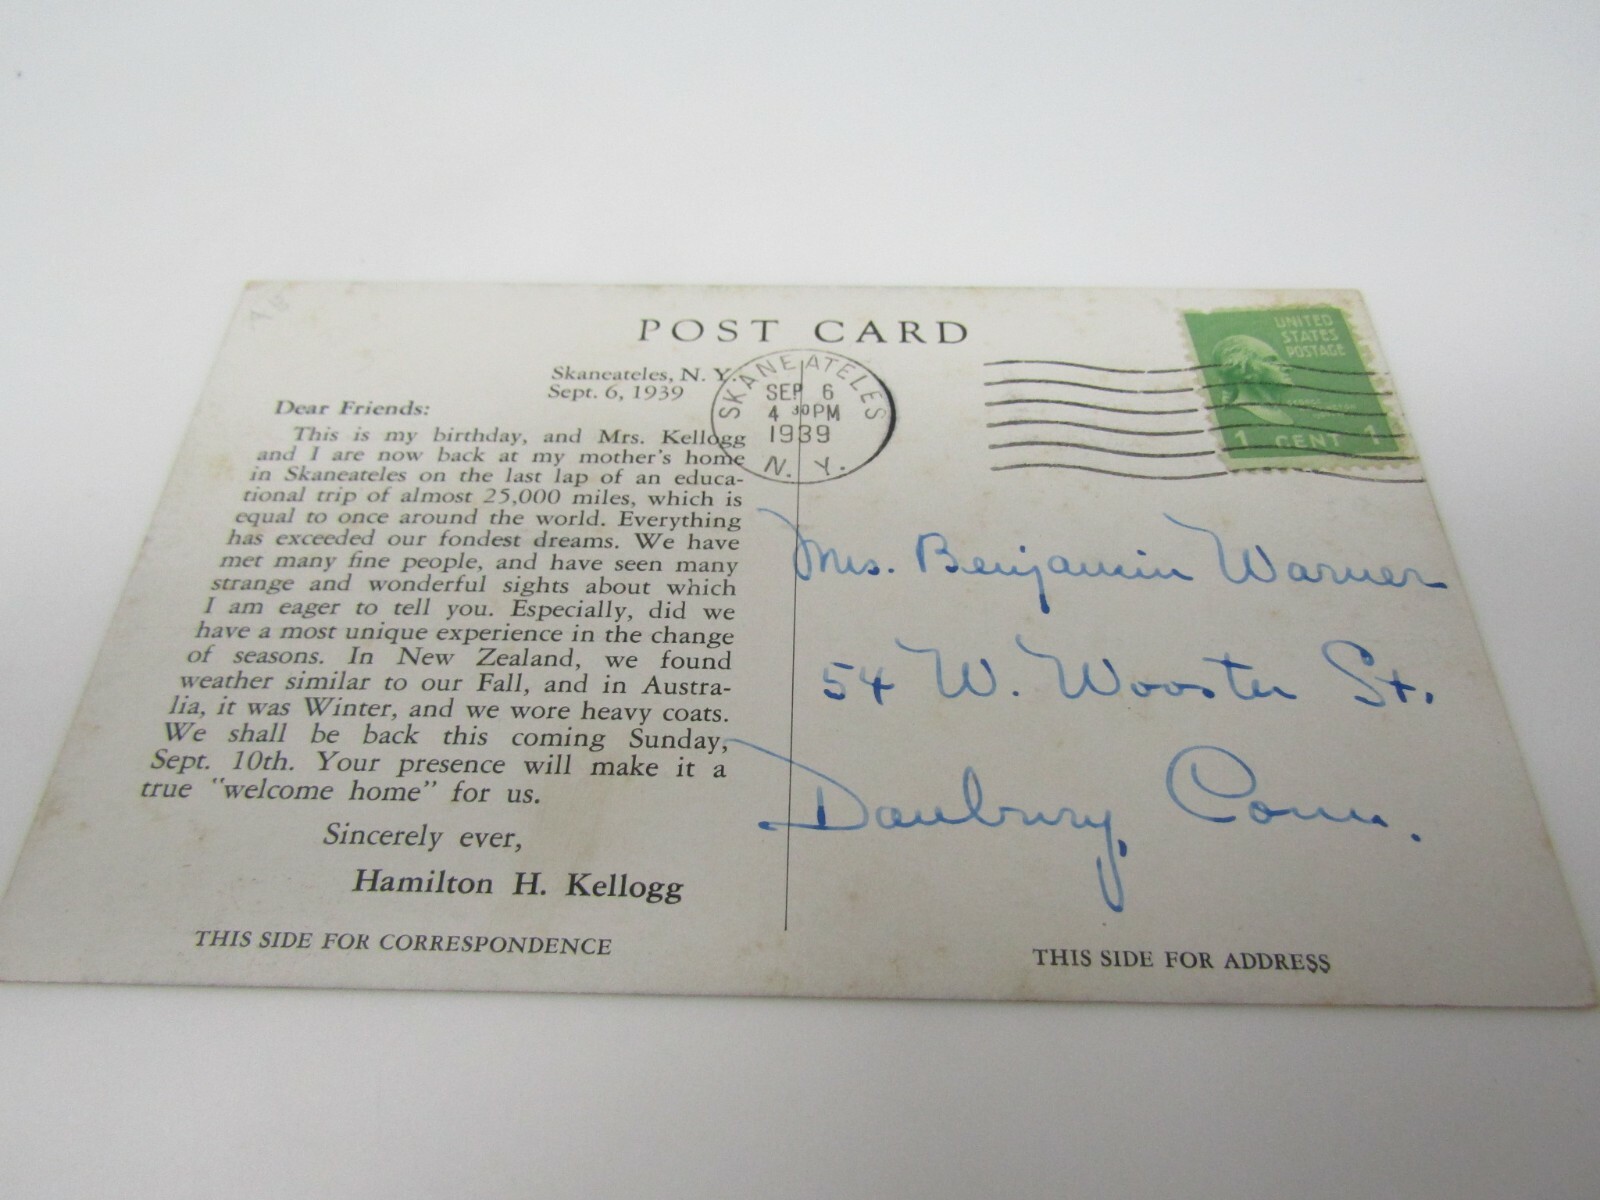 POST CARD
UNITED
STATES
POSTAGE
1 CENT 1
SKANEATELES
SEP 6
4 30 PM
1939
N. Y.
Skaneateles, N. Y.
Sept. 6, 1939
Dear Friends:
This is my birthday, and Mrs. Kellogg
and I are now back at my mother's home
in Skaneateles on the last lap of an educa-
tional trip of almost 25,000 miles, which is
equal to once around the world. Everything
has exceeded our fondest dreams. We have
met many fine people, and have seen many
strange and wonderful sights about which
I am eager to tell you. Especially, did we
have a most unique experience in the change
of seasons. In New Zealand, we found
weather similar to our Fall, and in Austra-
lia, it was Winter, and we wore heavy coats.
We shall be back this coming Sunday,
Sept. 10th. Your presence will make it a
true "welcome home" for us.
Sincerely ever,
Hamilton H. Kellogg
THIS SIDE FOR CORRESPONDENCE
Mrs. Benjamin Warner
54 W. Wooster St.
Danbury, Conn.
THIS SIDE FOR ADDRESS